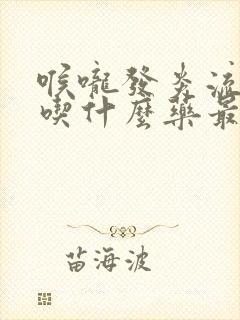 喉嚨發炎流
喫什麼藥最
苗海波